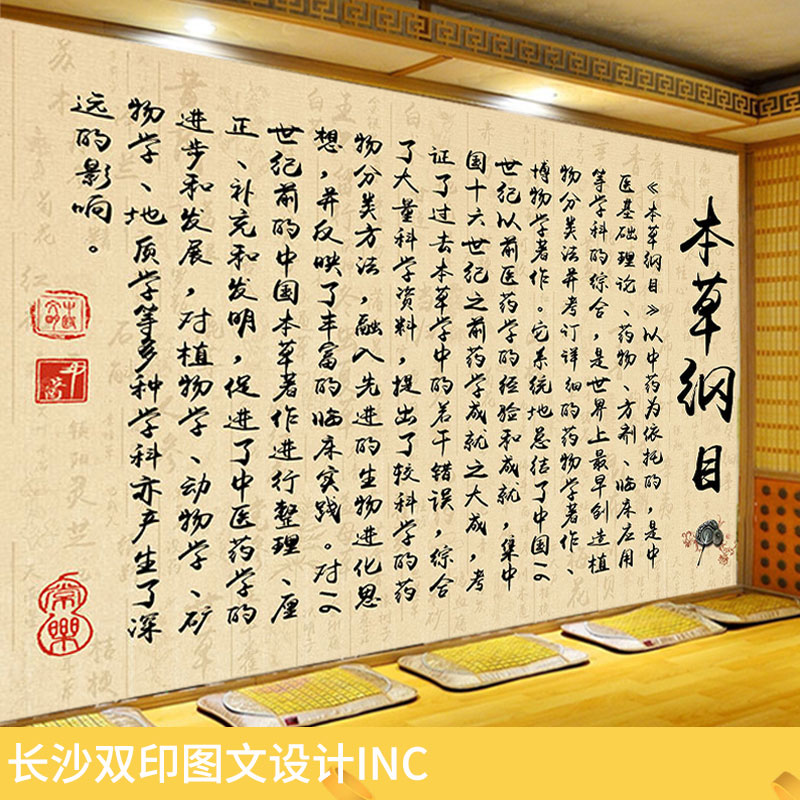 本草纲目
《本草纲目》以中药为依托的，是中
医基础理论、药物、方剂、临床应用
等学科的综合，是世界上最早创造植
物分类法并考订详细的药物学著作、
博物学著作。它系统地总结了中国16
世纪以前医药学的经验和成就，集中
国十六世纪之前药学成就之大成，考
证了过去本草学中的若干错误，综合
了大量科学资料，提出了较科学的药
物分类方法，融入先进的生物进化思
想，并反映了丰富的临床实践。对16
世纪前的中国本草著作进行整理、厘
正、补充和发明，促进了中医药学的
进步和发展，对植物学、动物学、矿
物学、地质学等多种学科亦产生了深
远的影响。
长沙双印图文设计INC